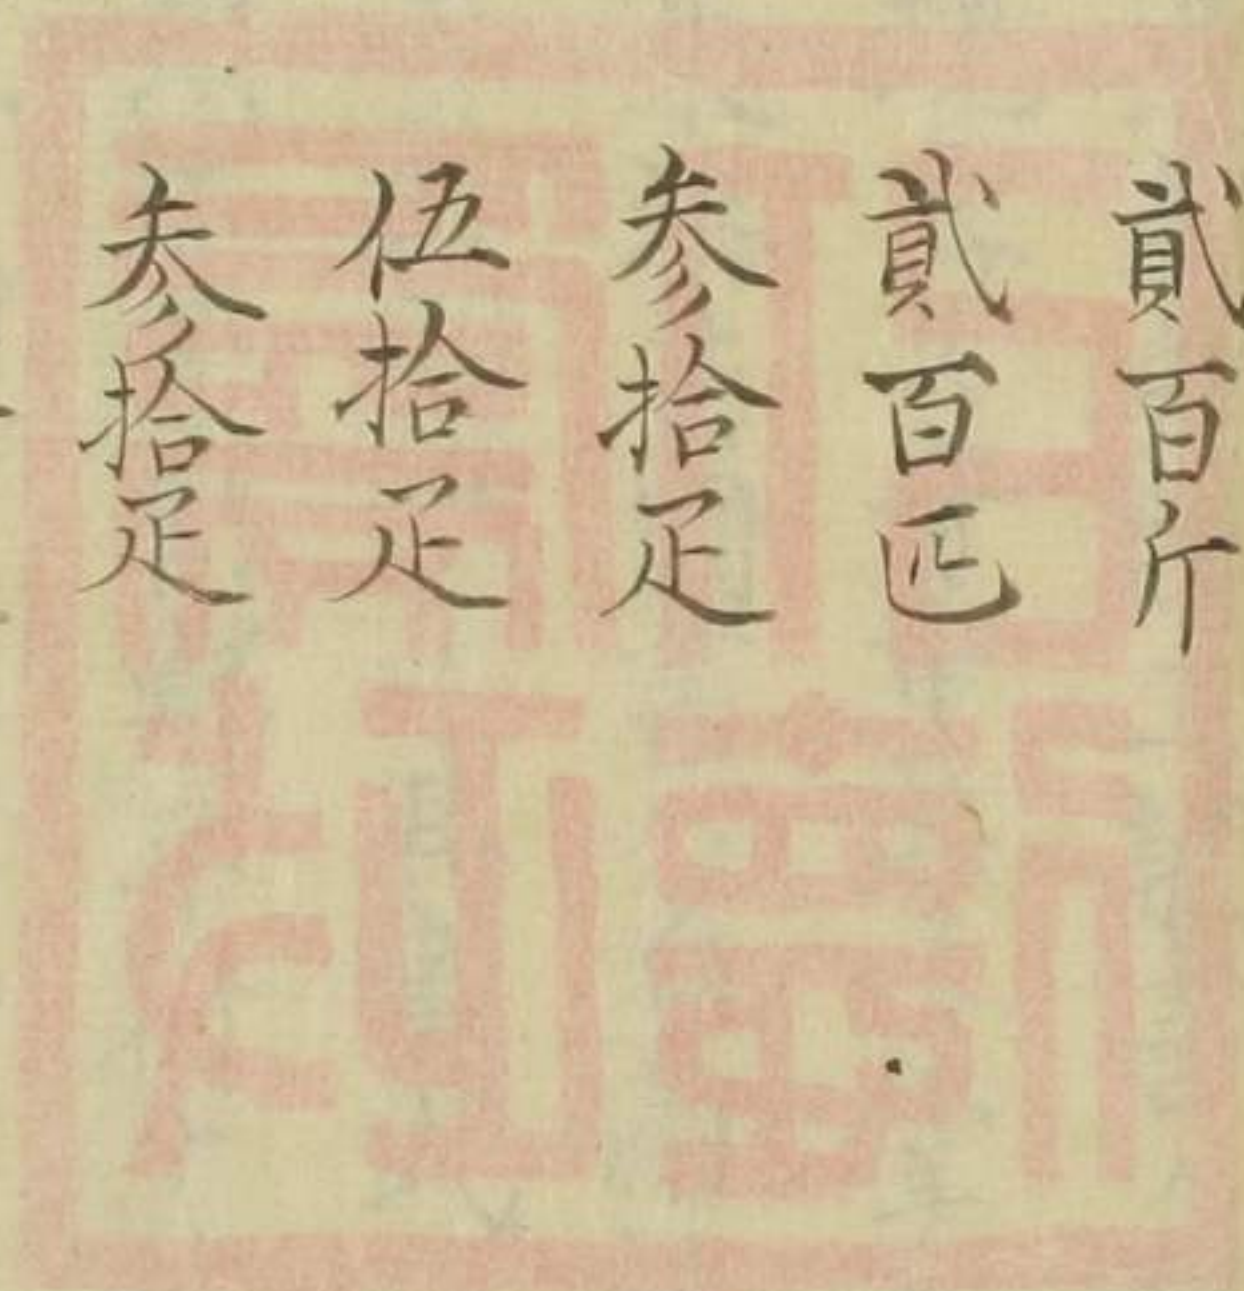 貳百斤
貳百匹
参拾疋
伍拾疋
参拾疋